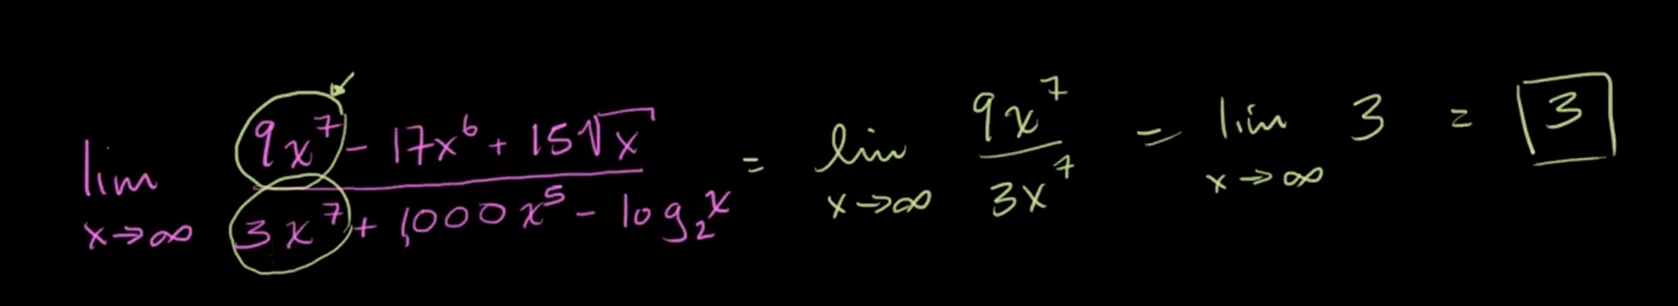 lim x→∞ (9x⁷ - 17x⁶ + 15√x) / (3x⁷ + 1,000x⁵ - log₂x) = lim x→∞ 9x⁷ / 3x⁷ = lim x→∞ 3 = 3